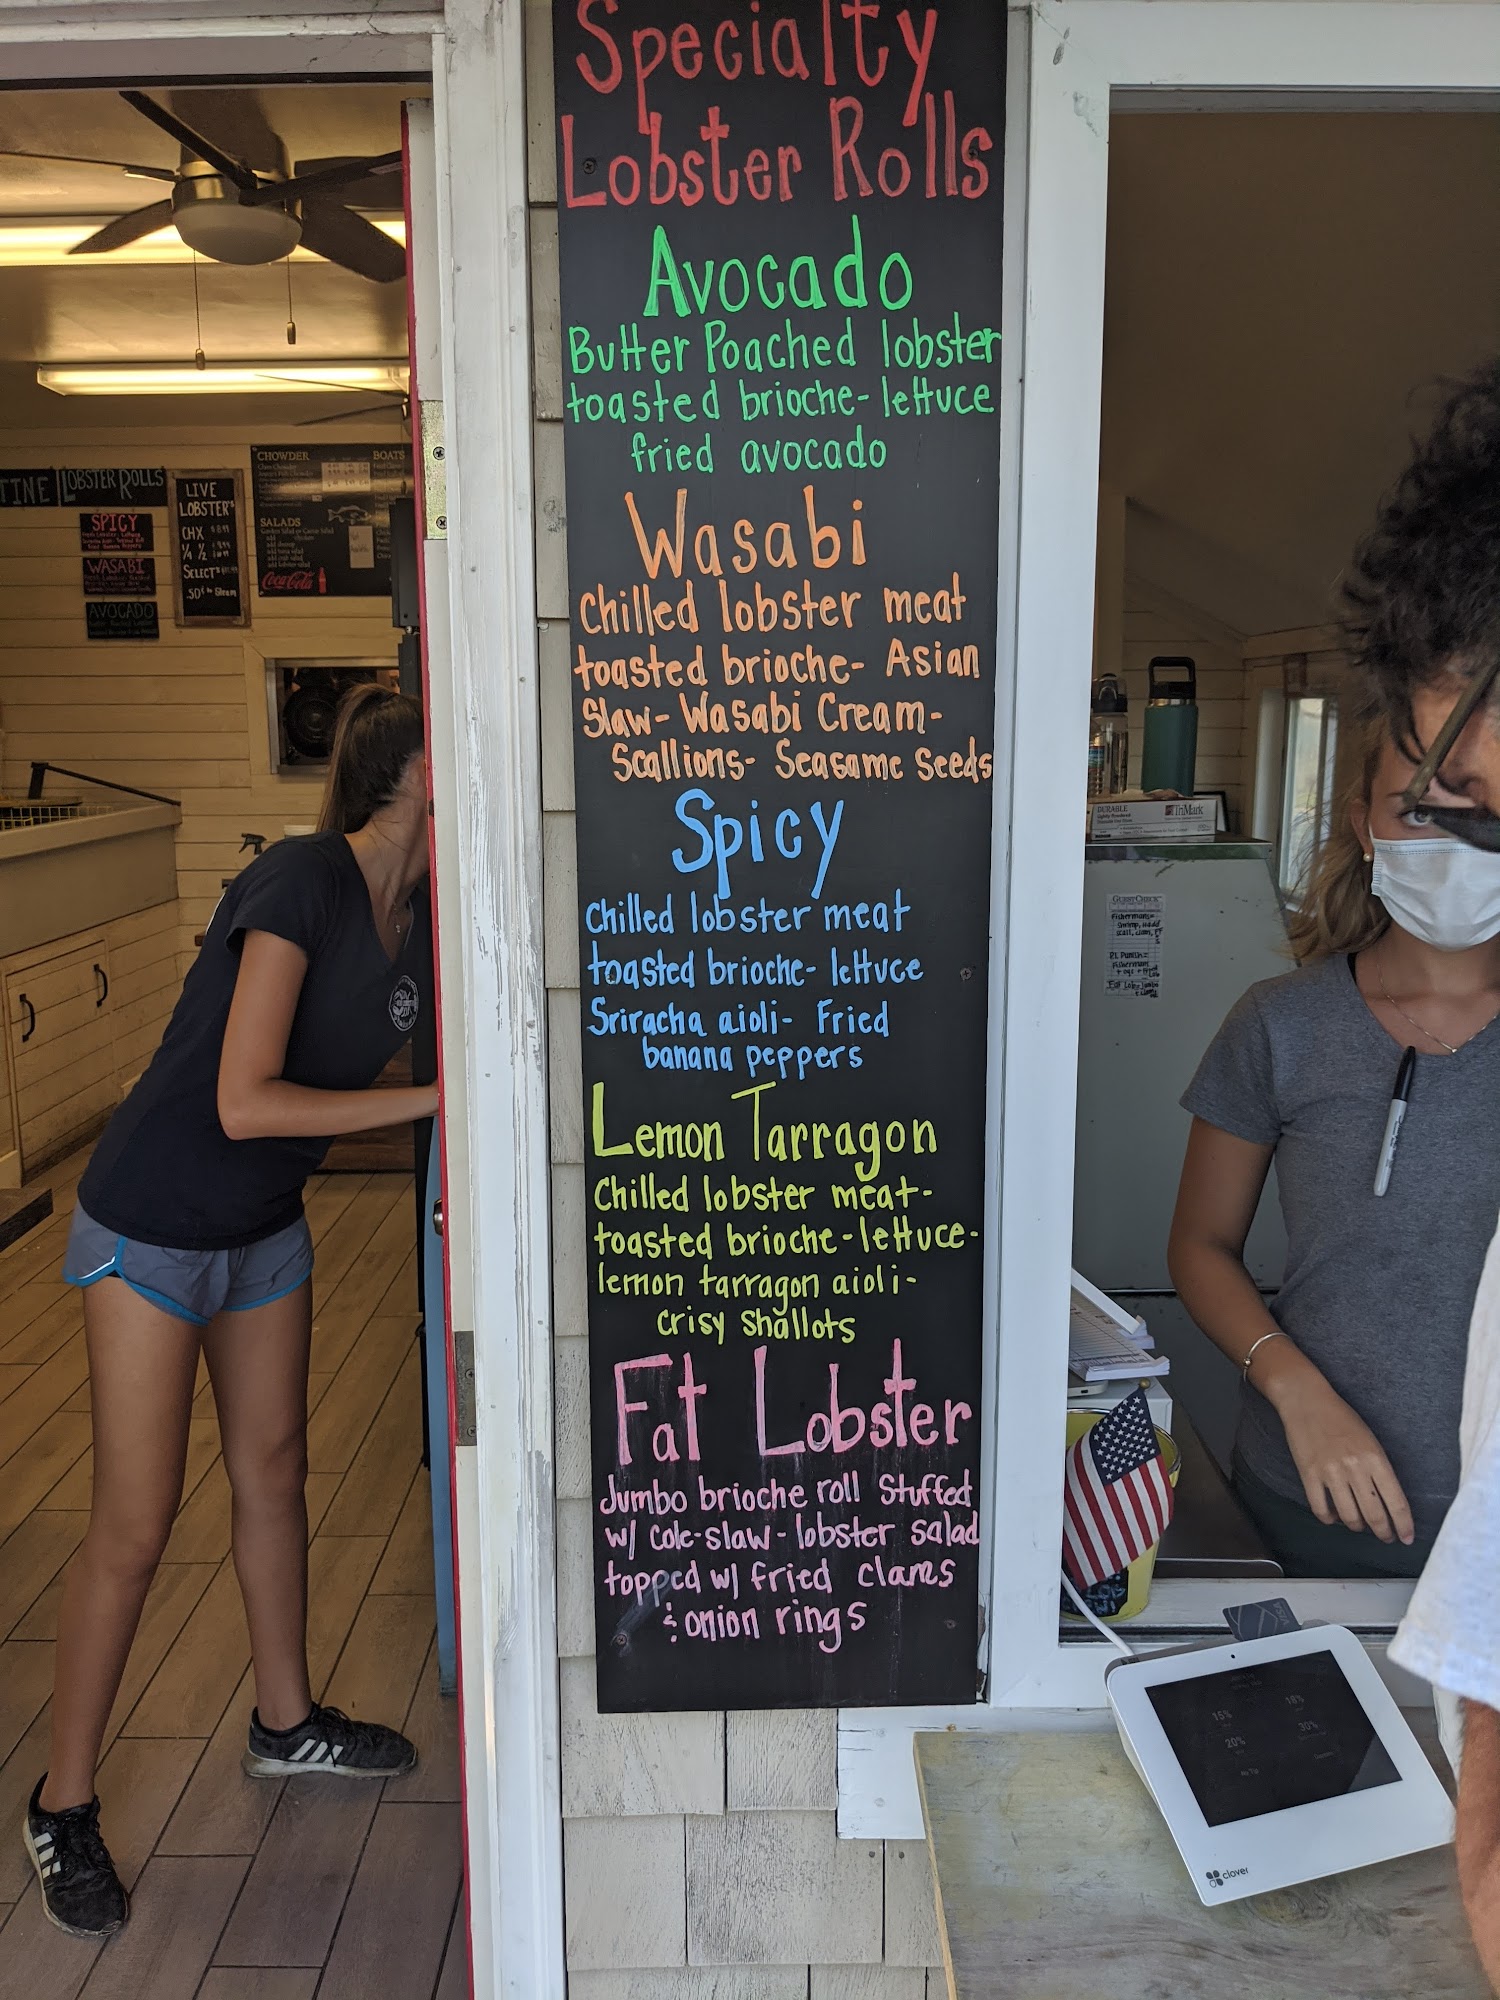 Specialty
Lobster Rolls
Avocado
Butter Poached lobster
toasted brioche- lettuce
fried avocado
Wasabi
Chilled lobster meat
toasted brioche- Asian
Slaw- Wasabi Cream-
Scallions- Seasame Seeds
Spicy
Chilled lobster meat
toasted brioche- lettuce
Sriracha aioli- Fried
banana peppers
Lemon Tarragon
Chilled lobster meat-
toasted brioche-lettuce-
lemon tarragon aioli-
crisy shallots
Fat Lobster
Jumbo brioche roll Stuffed
w/ cole-slaw-lobster salad
topped w/ fried clams
& onion rings
TINE LOBSTER ROLLS
SPICY
WASABI
AVOCADO
LIVE
LOBSTER'S
CHX
SELECT
CHOWDER
BOATS
SALADS
Coca-Cola
DURABLE
TriMark
GUEST CHECK
VISA
15%
18%
20%
30%
No Tip
clover